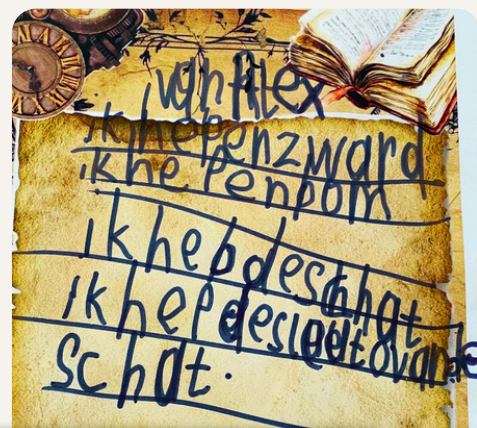 van Alex
ik hep enzward
ik he Penpom
ik heb deschat
ik hep desleutovande
schat.